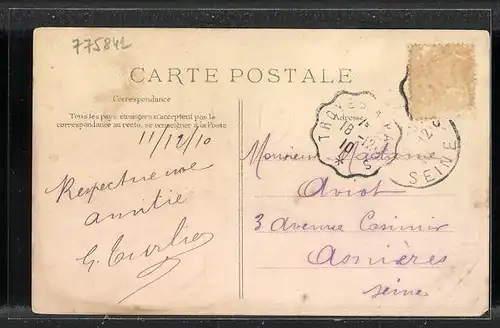 775842
CARTE POSTALE
Correspondance
Tous les pays étrangers n'acceptent pas la
correspondance au recto, se renseigner à la Poste
Adresse
11/12/10
Respectueuse
amitié
G. Turlier
TROYES A
18
-12
10
SEINE
Monsieur Madame
Aviot
3 avenue Casimir
Asnières
Seine